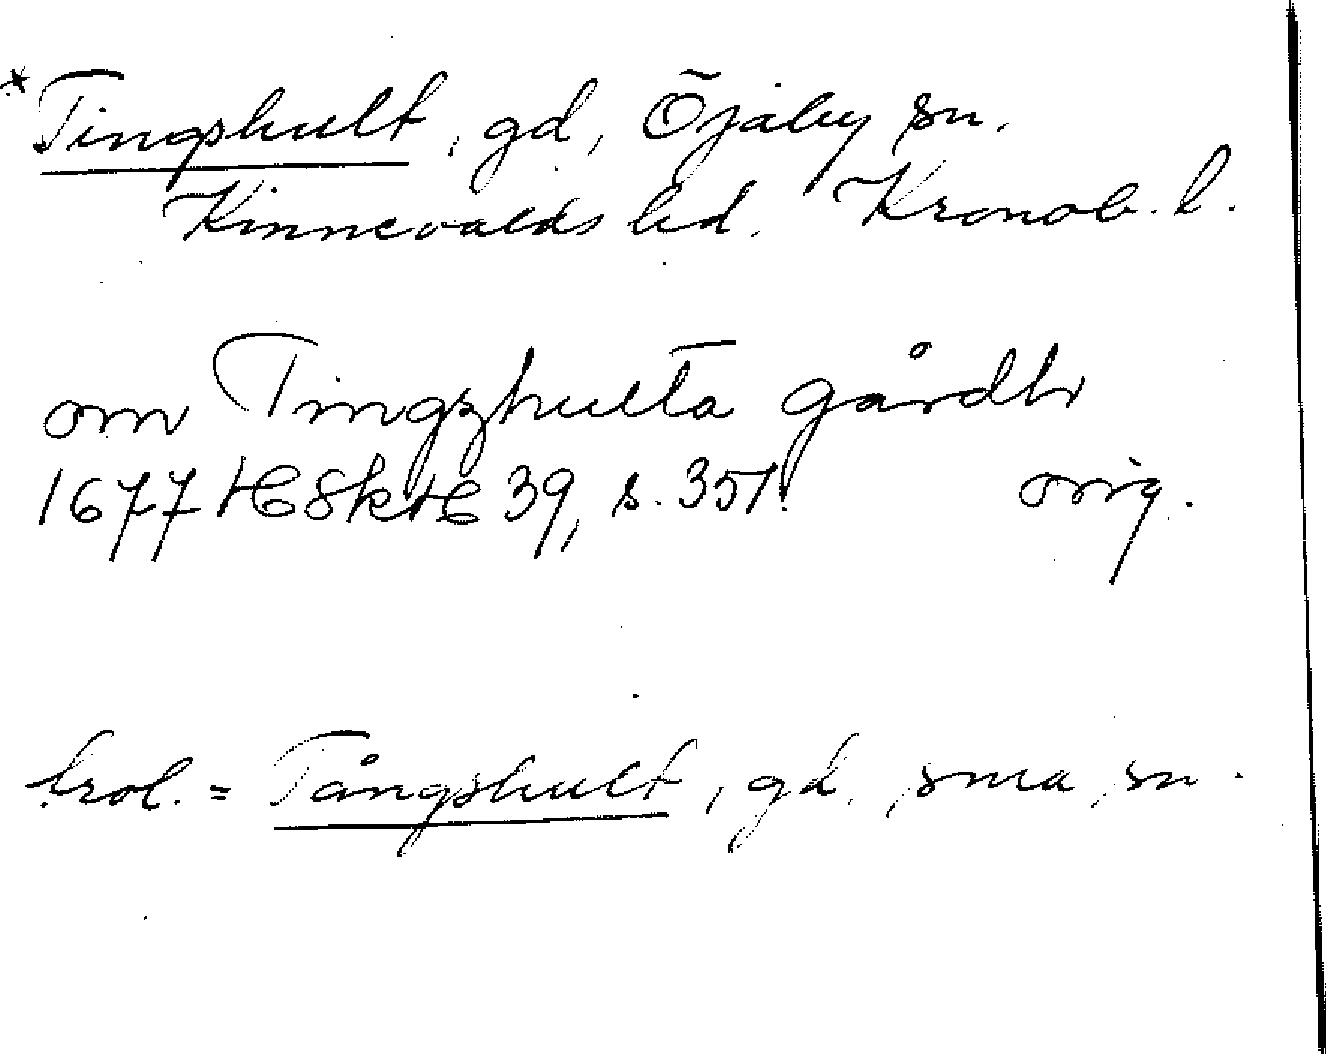 *Tingshult, gd, Öjaby sn,
Kinnevalds hd. Kronob. l.
om Tingzhulta gårdh
1677 HSkH 39, s. 351. orig.
trol. = Tångshult, gd, sma sn.